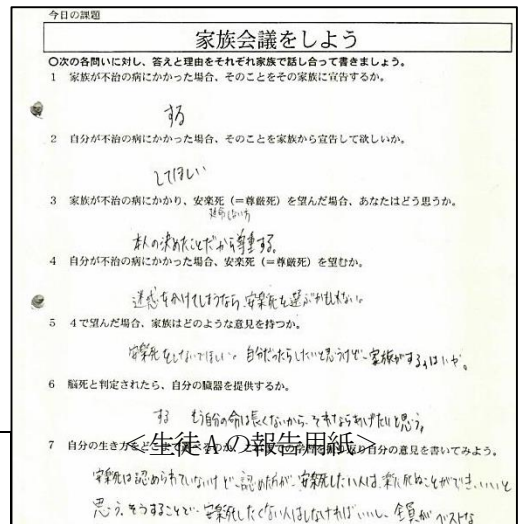 今日の課題
家族会議をしよう
〇次の各問いに対し、答えと理由をそれぞれ家族で話し合って書きましょう。
1 家族が不治の病にかかった場合、そのことをその家族に宣告するか。
する
2 自分が不治の病にかかった場合、そのことを家族から宣告して欲しいか。
してほしい
3 家族が不治の病にかかり、安楽死（＝尊厳死）を望んだ場合、あなたはどう思うか。
本人の決めたことだから尊重する。
4 自分が不治の病にかかった場合、安楽死（＝尊厳死）を望むか。
迷惑をかけてしまうなら、安楽死を選ぶかもしれない。
5 4で望んだ場合、家族はどのような意見を持つか。
安楽死をしないでほしい。自分だったらしたいと思うけど、家族がするのはいや。
6 脳死と判定されたら、自分の臓器を提供するか。
する もう自分の命は長くないから、それならあげたいと思う。
7 自分の生き方をどこまで
自分の意見を書いてみよう。
＜生徒Aの報告用紙＞
安楽死は認められていないけど、認めた方が、安楽死したい人は、楽に死ぬことができ、いいと
思う。そうすることで、安楽死したくない人はしなければいいし、全員がベストな